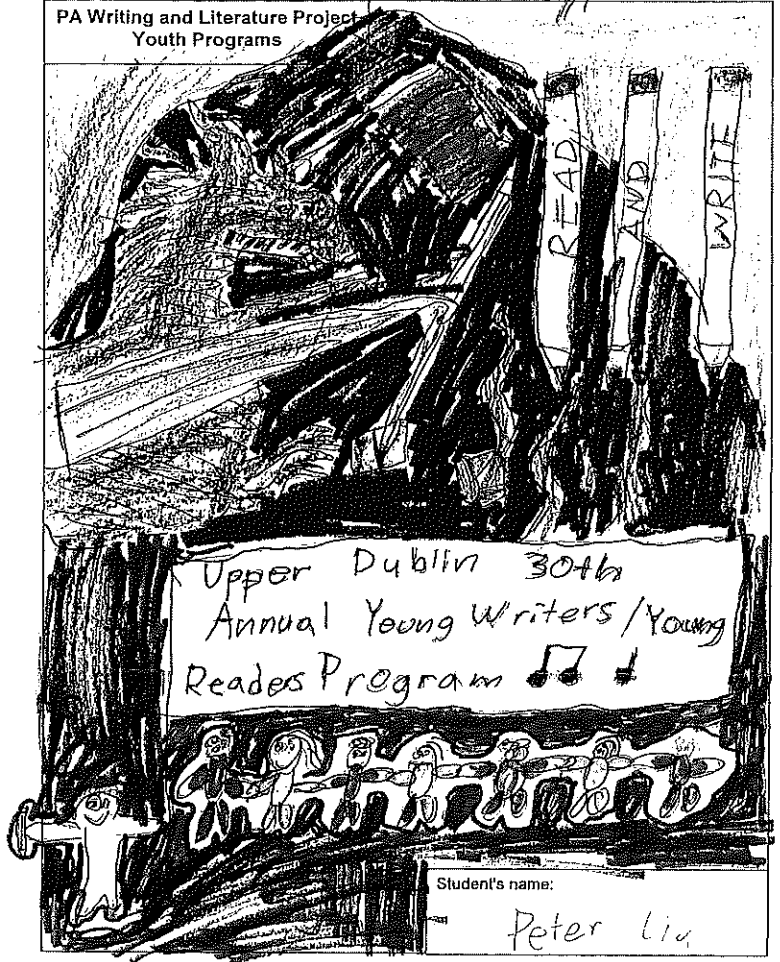 PA Writing and Literature Project
Youth Programs
READ
AND
WRITE
Upper Dublin 30th
Annual Young Writers/Young
Readers Program
Student's name:
Peter Liu